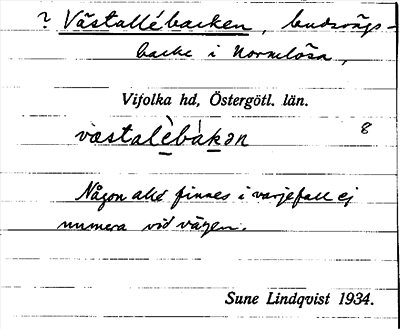 ? Västallébacken, landsvägs-
backe i Normlösa,
Vifolka hd, Östergötl. län.
västalèbákən 8
Någon allé finnes i varjefall ej
numera vid vägen.
Sune Lindqvist 1934.